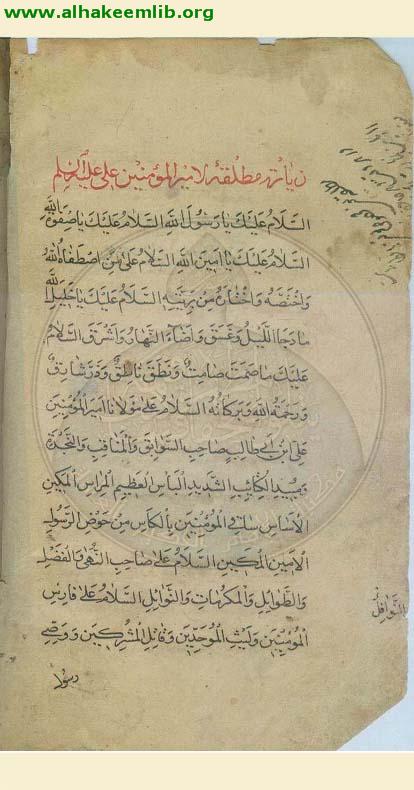 www.alhakeemlib.org
زيارة مطلقة لامير المؤمنين علي عليه السلم
السلام عليك يا رسول الله السلام عليك يا صفوة الله
السلام عليك يا امين الله السلام على من اصطفاه الله
واختصه واختاره من بريته السلام عليك يا خليل الله
ما دجا الليل وغسق واضاء النهار واشرق السلام
عليك ما صمت صامت ونطق ناطق وذر شارق
ورحمة الله وبركاته السلام على مولانا امير المؤمنين
علي ابن ابي طالب صاحب السوابق والمناقب والنجدة
ومبيد الكتائب الشديد الباس العظيم المراس المكين
الاساس ساقي المؤمنين بالكاس من حوض الرسول
الامين المكين السلام على صاحب النهى والفضل
والطوايل والمكرمات والنوايل السلام على فارس
النوافل
المؤمنين وليث الموحدين وقاتل المشركين ووصي
رسول